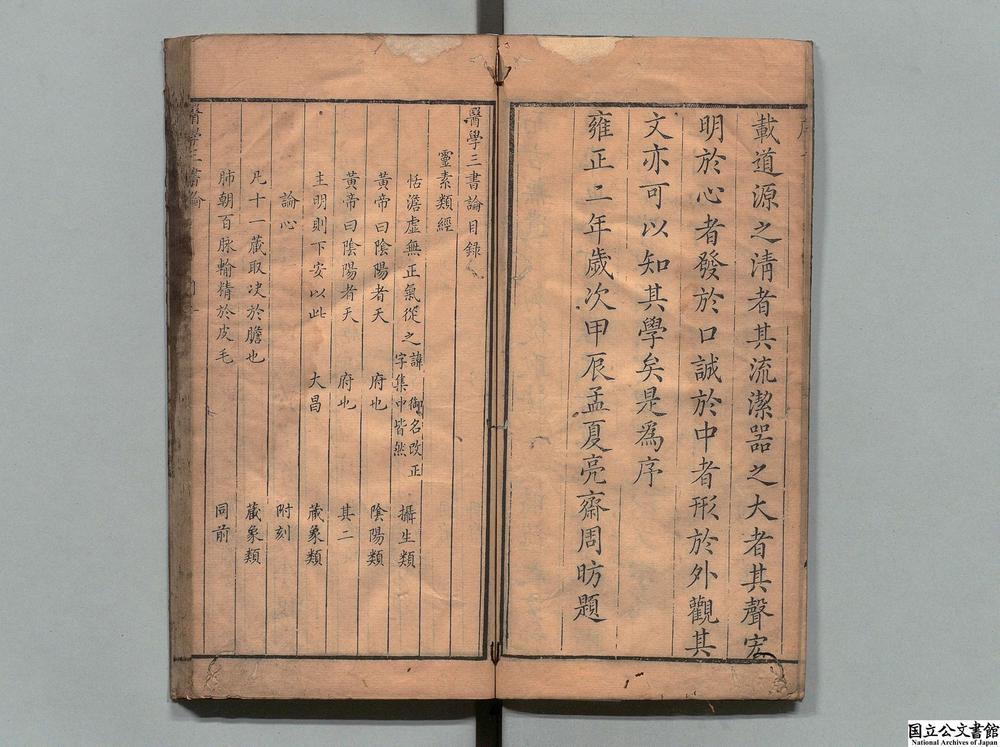 載道源之清者其流潔器之大者其聲宏
明於心者發於口誠於中者形於外觀其
文亦可以知其學矣是為序
雍正二年歲次甲辰孟夏亮齋周昉題
醫學三書論目錄
靈素類經
恬澹虛無正氣從之 諱 御名改正字集中皆然 攝生類
黃帝曰陰陽者天 府也 陰陽類
黃帝曰陰陽者天 府也 其二
主明則下安以此 大昌 藏象類
論心 附刻
凡十一藏取决於膽也 藏象類
肺朝百脉輸精於皮毛 同前
醫學三書論
国立公文書館
National Archives of Japan